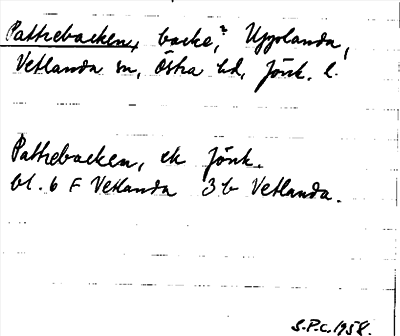 Pattrebacken, backe,? Upplanda,
Vetlanda sn, Östra hd, Jönk. l.
Pattrebacken, ek Jönk.
bl. 6 F Vetlanda 3 b Vetlanda.
S.P.C. 1958.